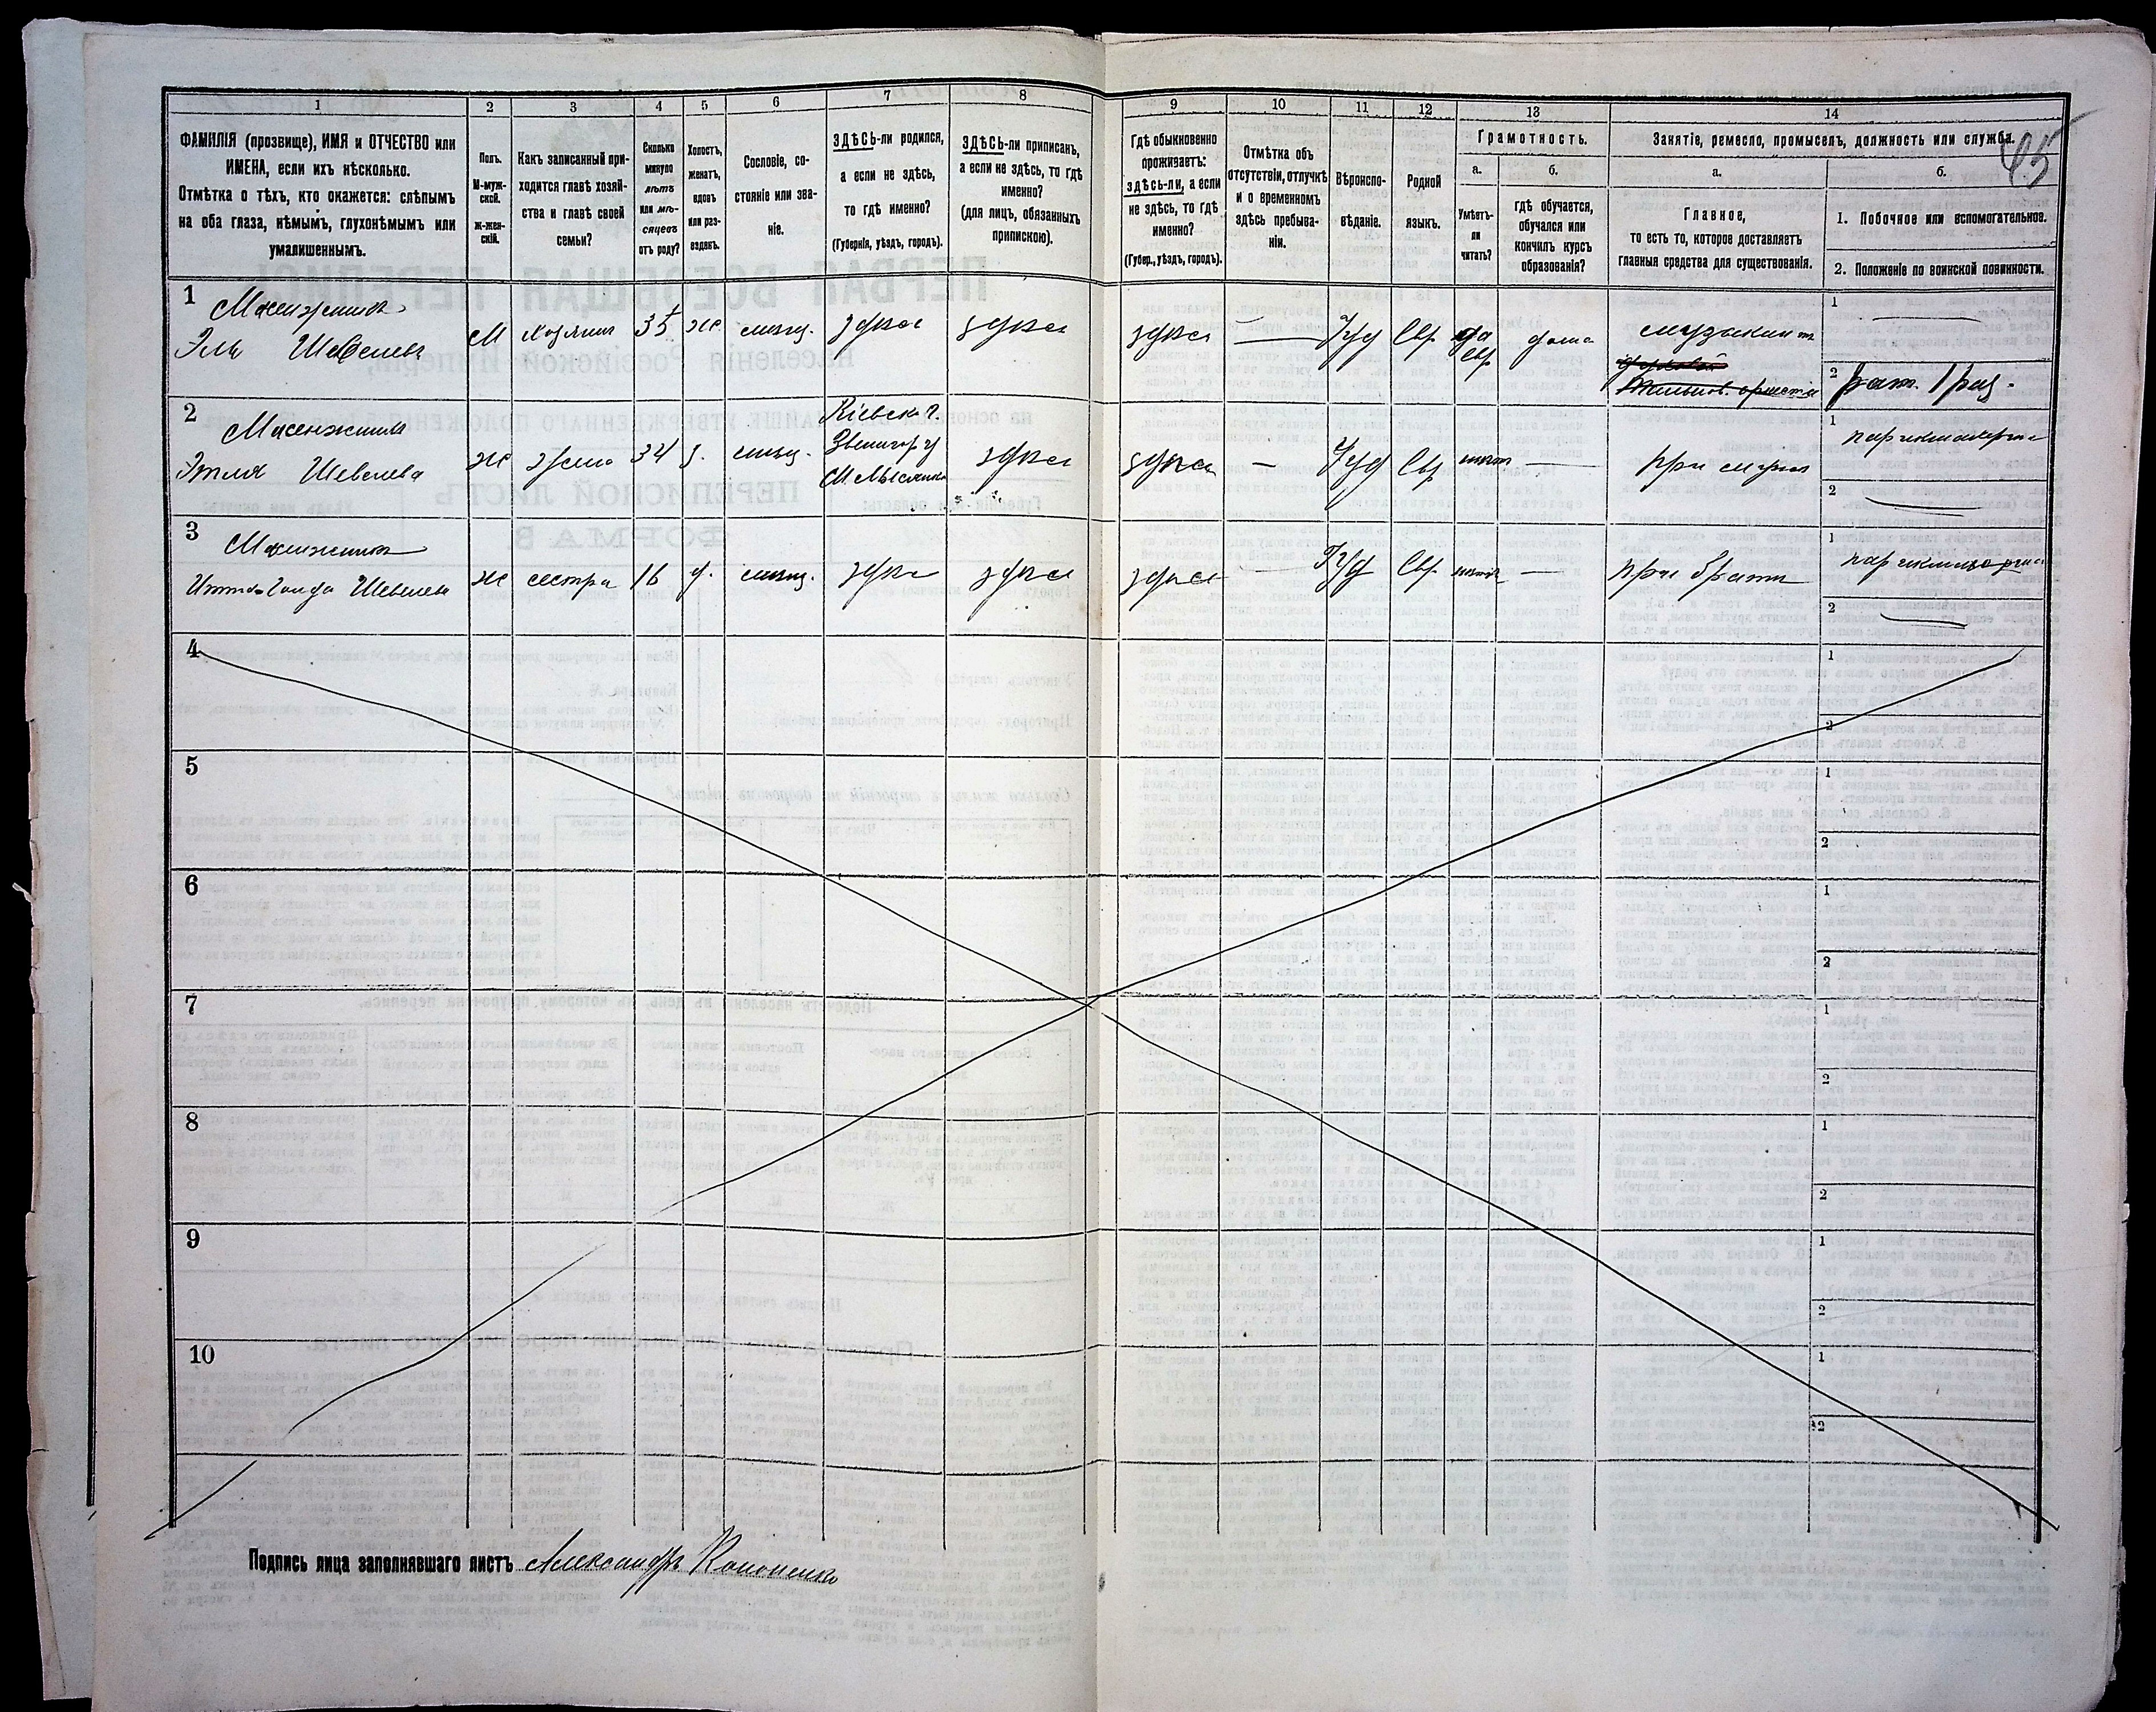 95
1 2 3 4 5 6 7 8 9 10 11 12 13 14
ФАМИЛІЯ (прозвище), ИМЯ и ОТЧЕСТВО или
ИМЕНА, если ихъ нѣсколько.
Отмѣтка о тѣхъ, кто окажется: слѣпымъ
на оба глаза, нѣмымъ, глухонѣмымъ или
умалишеннымъ.
Полъ.
М-муж-
ской.
Ж-жен-
скій.
Какъ записанный при-
ходится главѣ хозяй-
ства и главѣ своей
семьи?
Сколько
минуло
лѣтъ
или мѣ-
сяцевъ
отъ роду?
Холостъ,
женатъ,
вдовъ
или раз-
веденъ.
Сословіе, со-
стояніе или зва-
ніе.
ЗДѢСЬ-ли родился,
а если не здѣсь,
то гдѣ именно?
(Губернія, уѣздъ, городъ).
ЗДѢСЬ-ли приписанъ,
а если не здѣсь, то гдѣ
именно?
(для лицъ, обязанныхъ
припискою).
Гдѣ обыкновенно
проживаетъ:
здѣсь-ли, а если
не здѣсь, то гдѣ
именно?
(Губер., уѣздъ, городъ).
Отмѣтка объ
отсутствіи, отлучкѣ
и о временномъ
здѣсь пребыва-
ніи.
Вѣроиспо-
вѣданіе.
Родной
языкъ.
Грамотность.
а.
Умѣетъ-
ли
читать?
б.
гдѣ обучается,
обучался или
кончилъ курсъ
образованія?
Занятіе, ремесло, промыселъ, должность или служба.
а.
Главное,
то есть то, которое доставляетъ
главныя средства для существованія.
б.
1. Побочное или вспомогательное.
2. Положеніе по воинской повинности.
1
Эль Шевелевъ
М хозяинъ 35 ж. мѣщ. здѣсь здѣсь здѣсь — Іуд Евр да
Евр дома музыкантъ
1 —
2 рат. 1 раз.
2
Этля Шевелева
ж жена 34 з. мѣщ.
Кіевск. г.
Звенигор. у
здѣсь здѣсь — Іуд Евр — при мужѣ
1
2 —
3
Шевелева
ж сестра 16 д. мѣщ. здѣсь здѣсь здѣсь — Іуд Евр — при братѣ
1
2 —
4 1
2
5 1
2
6 1
2
7 1
2
8 1
2
9 1
2
10 1
2
Подпись лица заполнявшаго листъ Александръ Кононенко